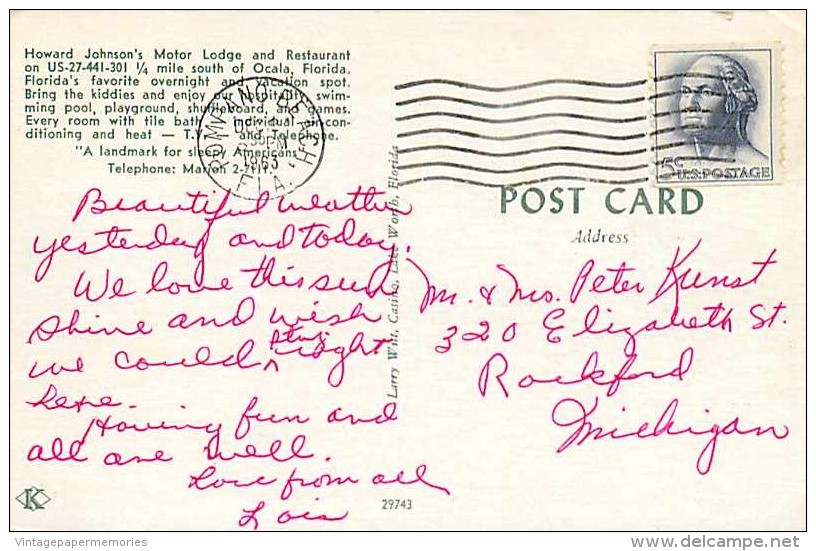 Howard Johnson's Motor Lodge and Restaurant
on US-27-441-301 1/4 mile south of Ocala, Florida.
Florida's favorite overnight and vacation spot.
Bring the kiddies and enjoy our hospitality, swim-
ming pool, playground, shuffleboard, and games.
Every room with tile bath, individual air-con-
ditioning and heat — T.V. and Telephone.
"A landmark for sleepy Americans"
Telephone: Marion 2-7111.
BEACH
PM
1963
FLA.
5c
U.S. POSTAGE
POST CARD
Address
Beautiful weather
yesterday and today.
We love this sun
shine and wish
we could stay
right
here.
Having fun and
all are well.
Love from all
Lois
Mr. & Mrs. Peter Kunst
320 Elizabeth St.
Rockford
Michigan
Larry Witt, Casino, Lake Worth, Florida
K
29743
Vintagepapermemories
delcampe.net